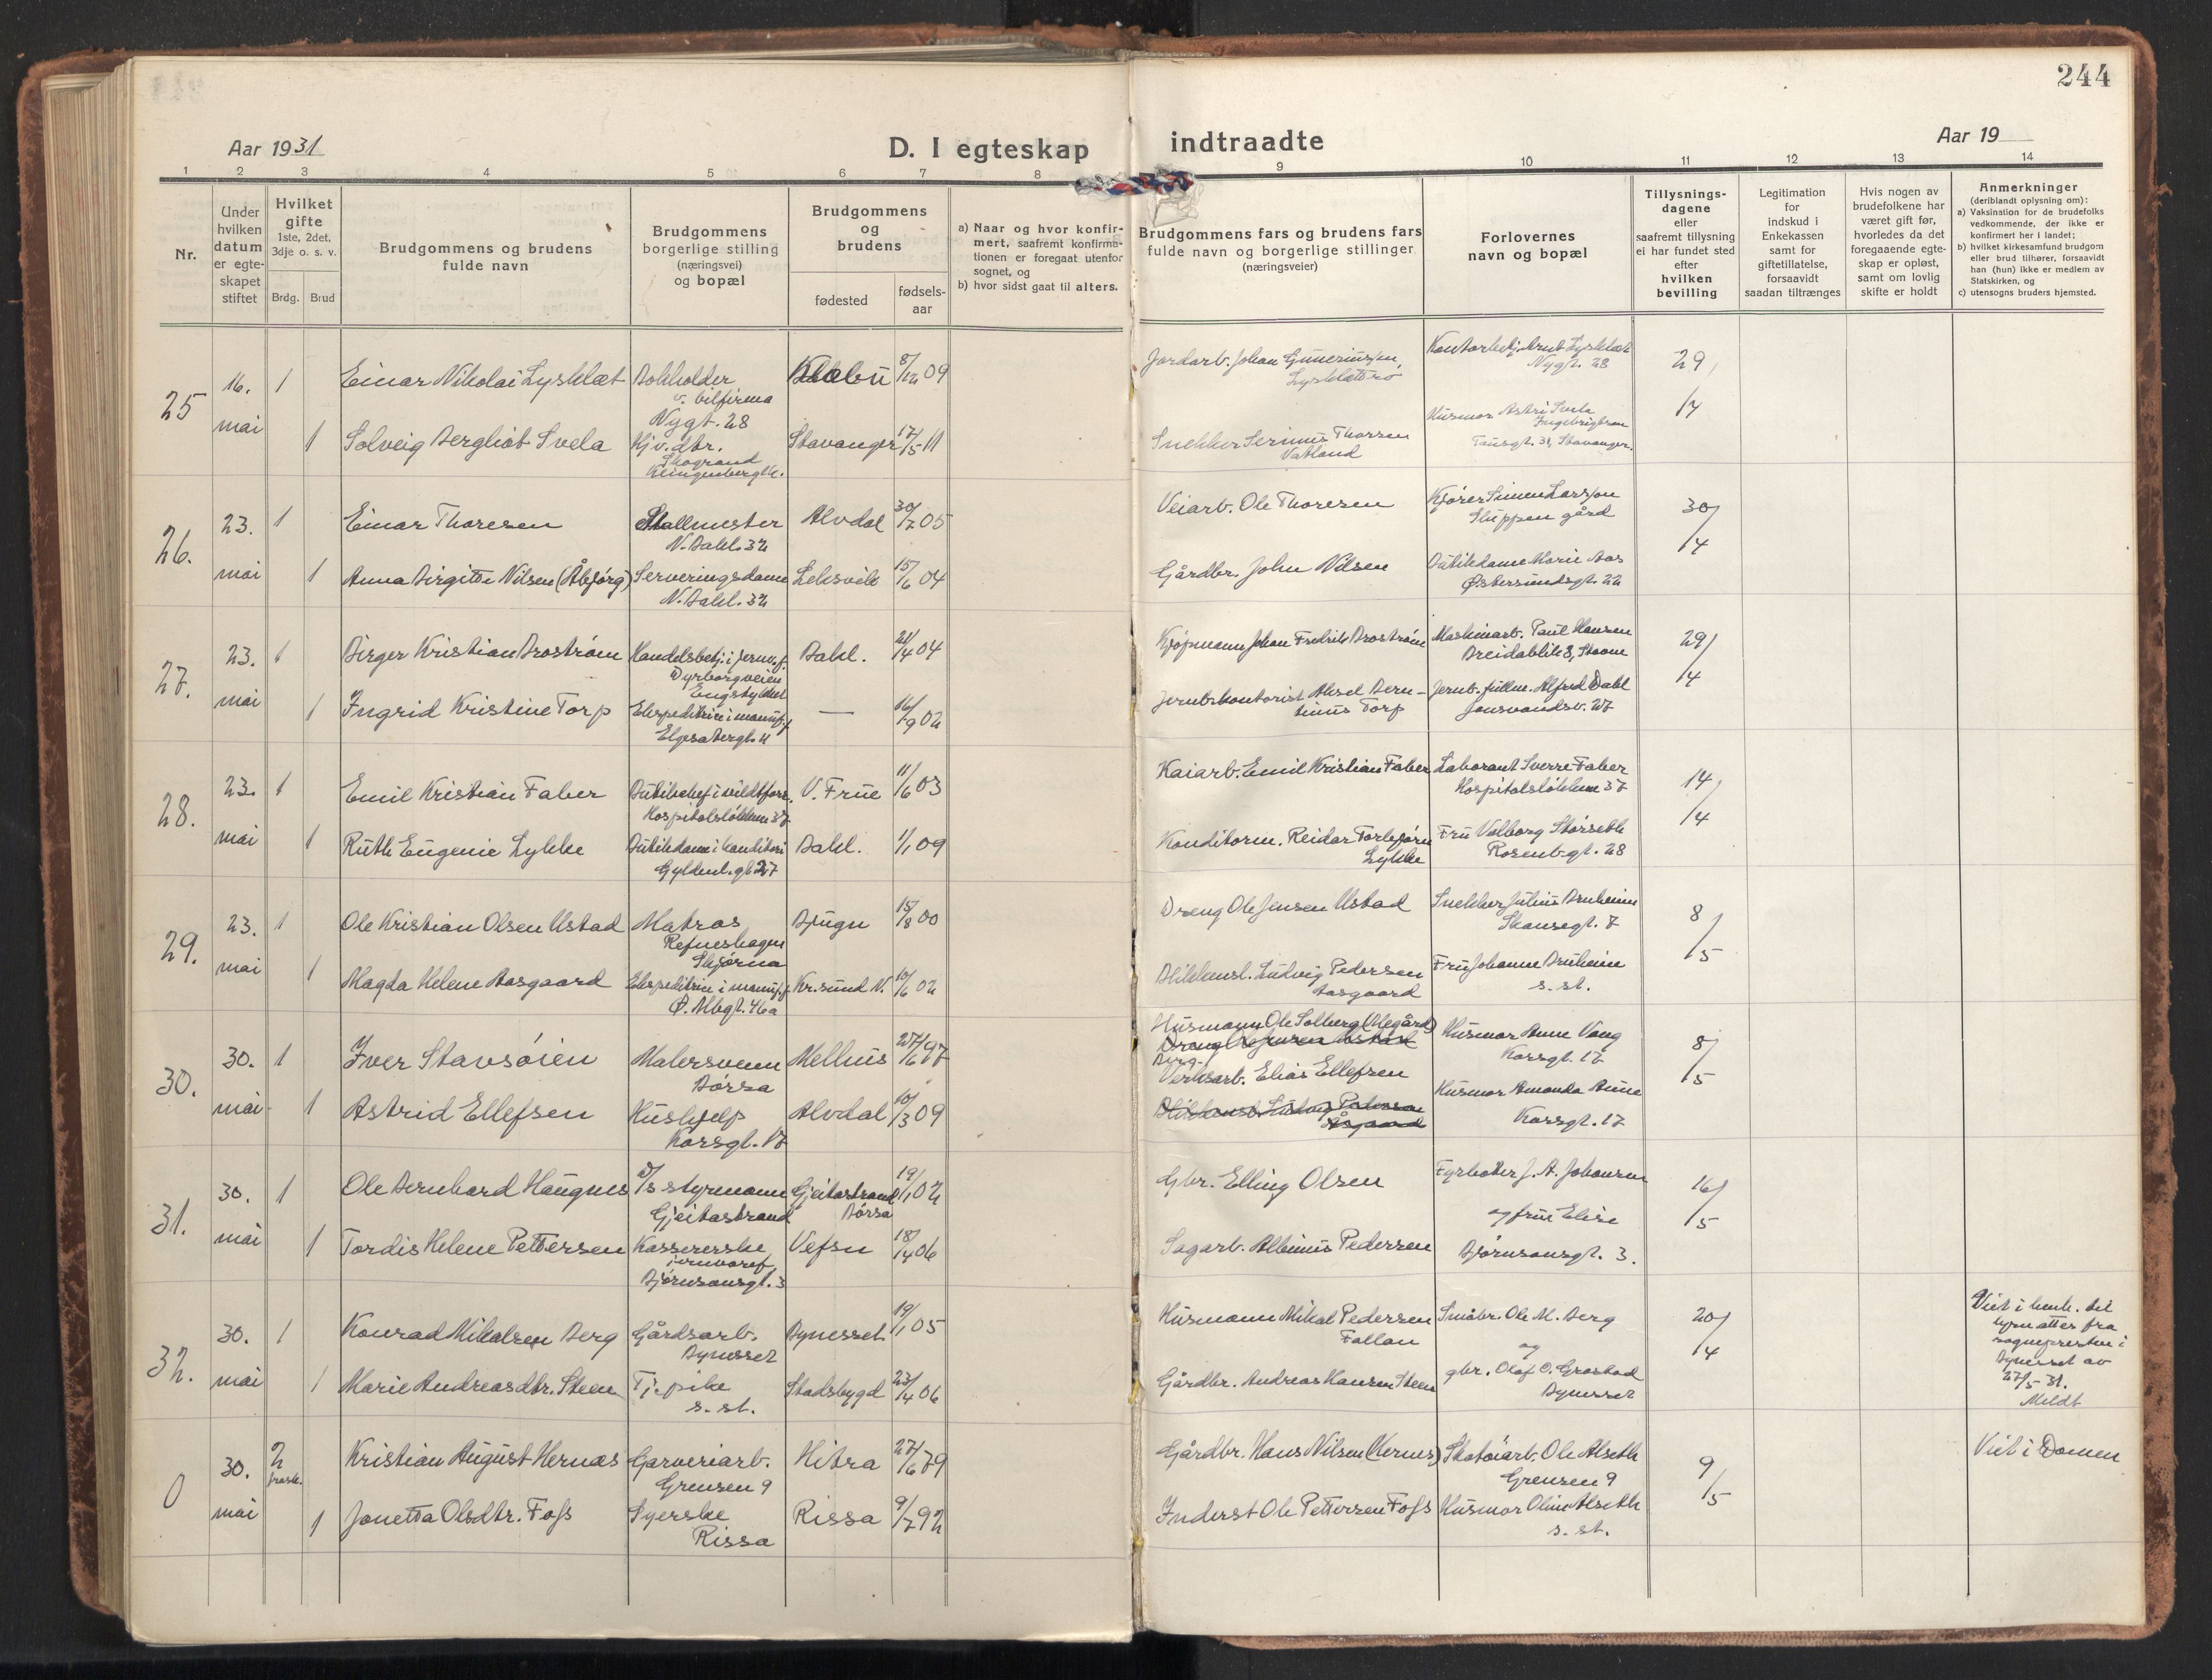 244
Aar 1931
D. I egteskap indtraadte
Aar 19
1 2 3 4 5 6 7 8 9 10 11 12 13 14
Nr.
Under
hvilken
datum
er egte-
skapet
stiftet
Hvilket
gifte
1ste, 2det,
3dje o. s. v.
Brdg. Brud
Brudgommens og brudens
fulde navn
Brudgommens
borgerlige stilling
(næringsvei)
og bopæl
Brudgommens
og
brudens
fødested
fødsels-
aar
a) Naar og hvor konfir-
mert, saafremt konfirma-
tionen er foregaat utenfor
sognet, og
b) hvor sidst gaat til alters.
Brudgommens fars og brudens fars
fulde navn og borgerlige stillinger
(næringsveier)
Forlovernes
navn og bopæl
Tillysnings-
dagene
eller
saafremt tillysning
ei har fundet sted
efter
hvilken
bevilling
Legitimation
for
indskud i
Enkekassen
samt for
giftetillatelse,
forsaavidt
saadan tiltrænges
Hvis nogen av
brudefolkene har
været gift før,
hvorledes da det
foregaaende egte-
skap er opløst,
samt om lovlig
skifte er holdt
Anmerkninger
(deriblandt oplysning om):
a) Vaksination for de brudefolks
vedkommende, der ikke er
konfirmert her i landet;
b) hvilket kirkesamfund brudgom
eller brud tilhører, forsaavidt
han (hun) ikke er medlem av
Statskirken, og
c) utensogns bruders hjemsted.
25 16. mai
1 Einar Nikolai Lysklæt
Bokholder
v. bilfirma
Nygt. 28
Klæbu 8/12 09
Jordarb. Johan Gunerius sen,
Lysklættrø
Kontorbetj. Arnt Lysklæt
Nygt. 28
29/4
1 Solveig Bergliot Svela
Hj.v. dtr.
Skogrand
Klingenbergkl.
Stavanger 17/5 11
Snekker Serinus Thorsen
Vatland
Husmor Astri Svela
Ingebrigtsen
Tausgt. 31, Stavanger.
26. 23. mai
1 Einar Thoresen
Stallmester
N. Bakl. 32
Alvdal 30/7 05
Veiarb. Ole Thoresen
Kjører Simen Larssen
Sluppen gård
30/4
1 Anna Birgitte Nilsen (Åbjørg)
Serveringsdame
N. Bakl. 32
Leksvik 15/6 04
Gårdbr. John Nilsen
Butikdame Marie Aas
Østersundsgt. 22
27. 23. mai
1 Birger Kristian Broström
Handelsbetj. i jernv.f.
Dyrborgveien
Engstykket
Bakl. 21/4 04
Kjøpmann Johan Fredrik Broström
Maskinarb. Paul Hansen
Breidablik 8, Stavne
29/4
1 Ingrid Kristine Torp
Ekspeditrice i manuf.f.
Elgesetergt. 11
— 16/9 02
Jernb.kontorist Aksel Bern-
tinus Torp
Jernb.fullm. Alfred Dahl
Jonsvandsv. 27
28. 23. mai
1 Emil Kristian Faber
Butikchef i vildtforr.
Hospitalsløkken 37
V. Frue 11/6 03
Kaiarb. Emil Kristian Faber
Laborant Sverre Faber
Hospitalsløkken 37
14/4
1 Ruth Eugenie Lykke
Butikdame i konditori
Gyldenl. gt. 27
Bakl. 1/1 09
Konditorm. Reidar Torbjørn
Lykke
Fru Valborg Størseth
Rosenb.gt. 28
29. 23. mai
1 Ole Kristian Olsen Ustad
Matros
Refneshagen
Skjørna
Bjugn 15/8 00
Dreng Ole Jensen Ustad
Snekker Julius Bruheim
Skansegt. 7
8/5
1 Magda Helene Aasgaard
Ekspeditrice i manuf.f.
Ø. Møbgt. 46a
Kr.sund N. 10/6 02
Blikkensl. Ludvig Pedersen
Aasgaard
Fru Johanne Bruheim
s. st.
30. 30. mai
1 Iver Stavsøien
Malersvenn
Børsa
Melhus 27/6 97
Husmann Ole Solberg (Megård)
Dreng Ole Jensen Ustad
Husmor Anne Vang
Korsgt. 17
8/5
1 Astrid Ellefsen
Hushjelp
Korsgt. 17
Alvdal 10/3 09
Berg-
Verksarb. Elias Ellefsen
Blikkensl. Ludvig Pedersen
Åsgaard
Husmor Amanda Aune
Korsgt. 17
31. 30. mai
1 Ole Bernhard Haugnes
D/s styrmann
Gjeitastrand
Gjeitastrand
Børsa
19/1 02
Gbr. Elling Olsen
Fyrbøter J. A. Johansen
16/5
og fru Elise
1 Tordis Helene Pettersen
Kassererske
jernvaref.
Bjørnsonsgt. 3
Vefsn 18/4 06
Sagarb. Albinus Pedersen
Bjørnsonsgt. 3.
32. 30. mai
1 Konrad Mikalsen Berg
Gårdsarb.
Bynesset
Bynesset 19/1 05
Husmann Mikal Pedersen
Fallan
Småbr. Ole M. Berg
og
20/4
Viet i henh. til
lysn.attes fra
sognepresten i
Bynesset av
27/5 31.
Meldt
1 Marie Andreasdtr. Steen
Tj.pike
s. st.
Stadsbygd 23/4 06
Gårdbr. Andreas Hansen Steen
gbr. Olaf O. Grostad
Bynesset
0 30. mai
2 frask.
Kristian August Hernæs
Garveriarb.
Grensen 9
Hitra 27/6 79
Gårdbr. Hans Nilsen (Hernes)
Skotøiarb. Ole Alseth
Grensen 9
9/5
Viet i Domen
1 Jonetta Olsdtr. Foss
Syerske
Rissa
Rissa 9/7 92
Inderst Ole Pettersen Foss
Husmor Oline Alseth
s. st.